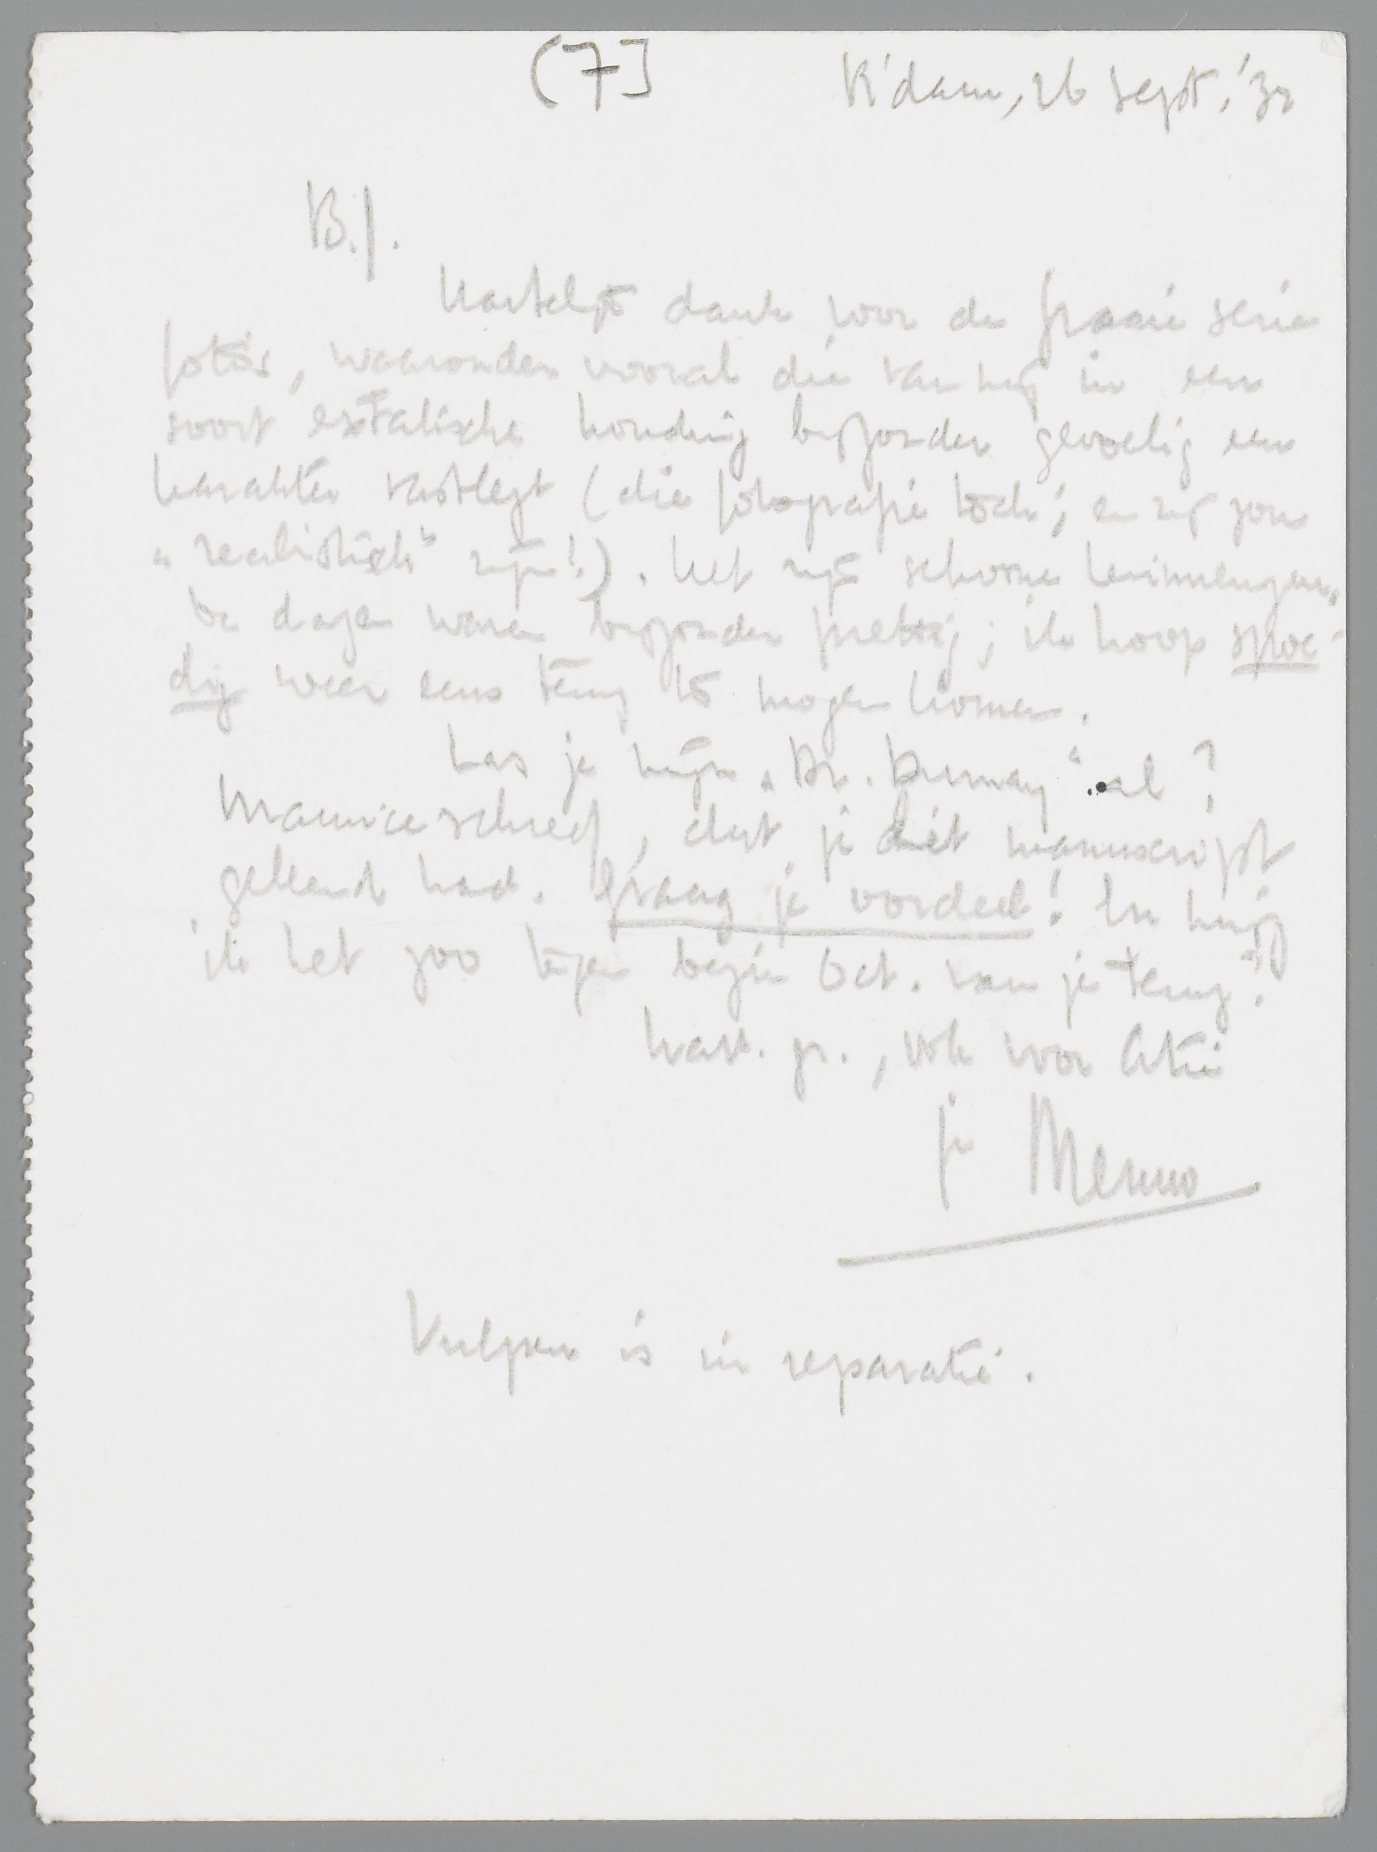 (7]
R'dam, 26 Sept. '32
B.J.
Hartelijk dank voor de fraaie serie
foto's, waaronder vooral die van mij in een
soort extatische houding bijzonder gevoelig een
karakter vastlegt (die fotografie toch; en zij zou
„realistisch" zijn!). Het zijn schoone herinneringen,
de dagen waren bijzonder prettig; ik hoop spoe-
dig weer eens terug te mogen komen.
Las je mijn „Dr. Dumay" al?
Maurice schreef, dat je het manuscript
geleend had. Graag je oordeel! En krijg
ik het zoo tegen begin Oct. van je terug?
Hart. gr., ook voor Atie
je Menno
Vulpen is in reparatie.